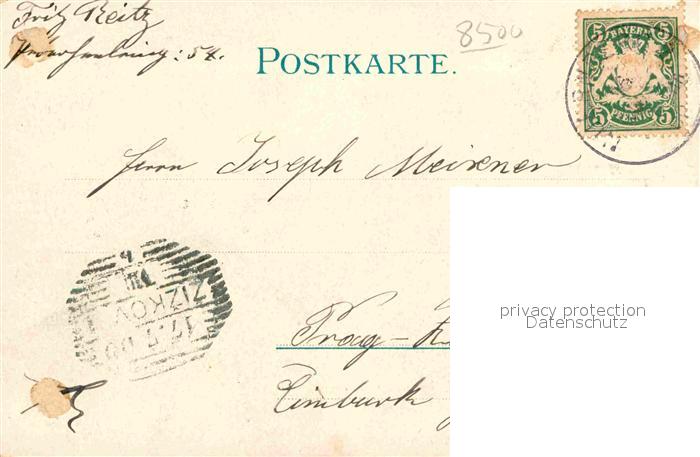 Fritz Reitz
: 54.
8500
POSTKARTE.
5 BAYERN 5
5 PFENNIG 5
Herrn Joseph Meixner
ZIZKOV
17.7.00
Prag-
Cimburk
privacy protection
Datenschutz